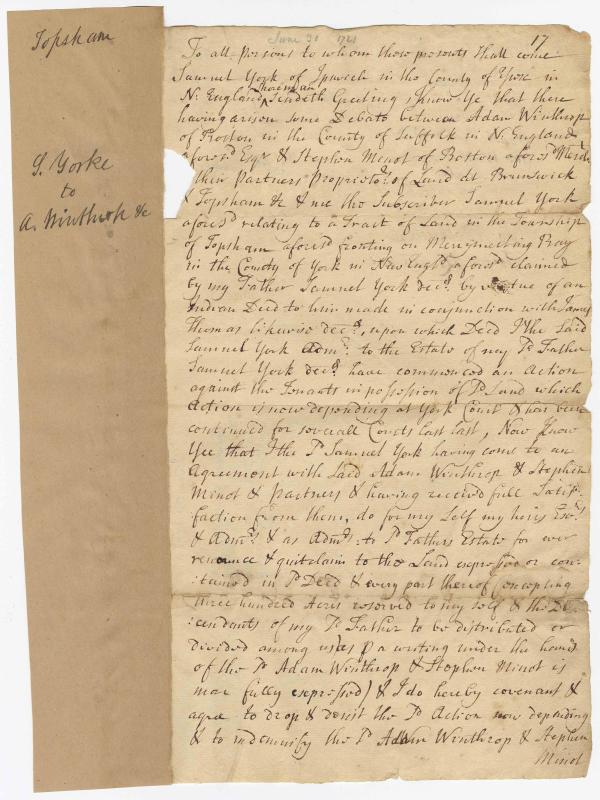 Topsham
S. Yorke
to
A. Winthrop &c
June 30 1721
17
To all persons to whom these presents Shall come
Samuel York of Ipswich in the County of
N: England Sendeth Greeting, Know Ye that there
having arisen Some Debate between Adam Winthrop
of Boston in the County of Suffolk in N: England
afores.d Esq.r & Stephen Minot of Boston afores.d
their Partners Propriet.rs of Land at Brunswick
& Topsham &c & me the Subscriber Samuel York
afores.d relating to a Tract of Land in the Township
of Topsham afores.d fronting on Merrymeeting Bay
in the County of York in New Engl.d afores.d claimed
by my Father Samuel York dec.d by vertue of an
Indian Deed to him made in conjunction with James
Thomas likewise dec.d, upon which Deed I the Said
Samuel York Adm.r to the Estate of my S.d Father
Samuel York dec.d have commenced an Action
against the Tenants in possession of S.d Land which
Action is now depending at York Court & has been
continued for severall Courts last past, Now Know
Yee that I the S.d Samuel York having come to an
Agreement with Said Adam Winthrop & Stephen
Minot & Partners & having received full Satis-
faction from them, do for my Self my heirs Ex.rs
& Adm.rs & as Adm.r to S.d Fathers Estate for ever
renounce & quitclaim to the Land expressed or con-
tained in S.d Deed & every part thereof, excepting
three hundred Acres reserved to my self & the Des-
cendants of my S.d Father to be distributed or
divided among us (as p a writing under the hands
of the S.d Adam Winthrop & Stephen Minot is
more fully expressed) & I do hereby covenant &
agree to drop & desist the S.d Action now depending
& to indemnify the S.d Adam Winthrop & Stephen
Minot